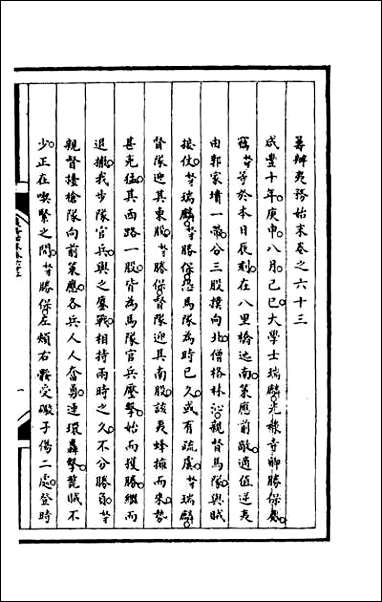 籌辦夷務始末卷之六十三
咸豐十年庚申八月己巳大學士瑞麟光祿寺卿勝保奏
竊等於本日辰刻在八里橋迤南策應前敵適值逆夷
由郭家墳一帶分三股撲向北僧格林沁親督馬隊與賊
接仗等瑞麟等勝保恐馬隊為時已久或有疏虞等瑞麟
督隊迎其東股等勝保督隊迎其南股該夷蜂擁而來勢
甚兇猛其西路一股皆為馬隊官兵擊始而獲勝繼而
退撤我步隊官兵與之鏖戰相持兩時之久不分勝負等
親督擡槍隊向前策應各兵人人奮勇連環轟擊斃賊不
少正在喫緊之間等勝保左頰右受礮子傷二處登時